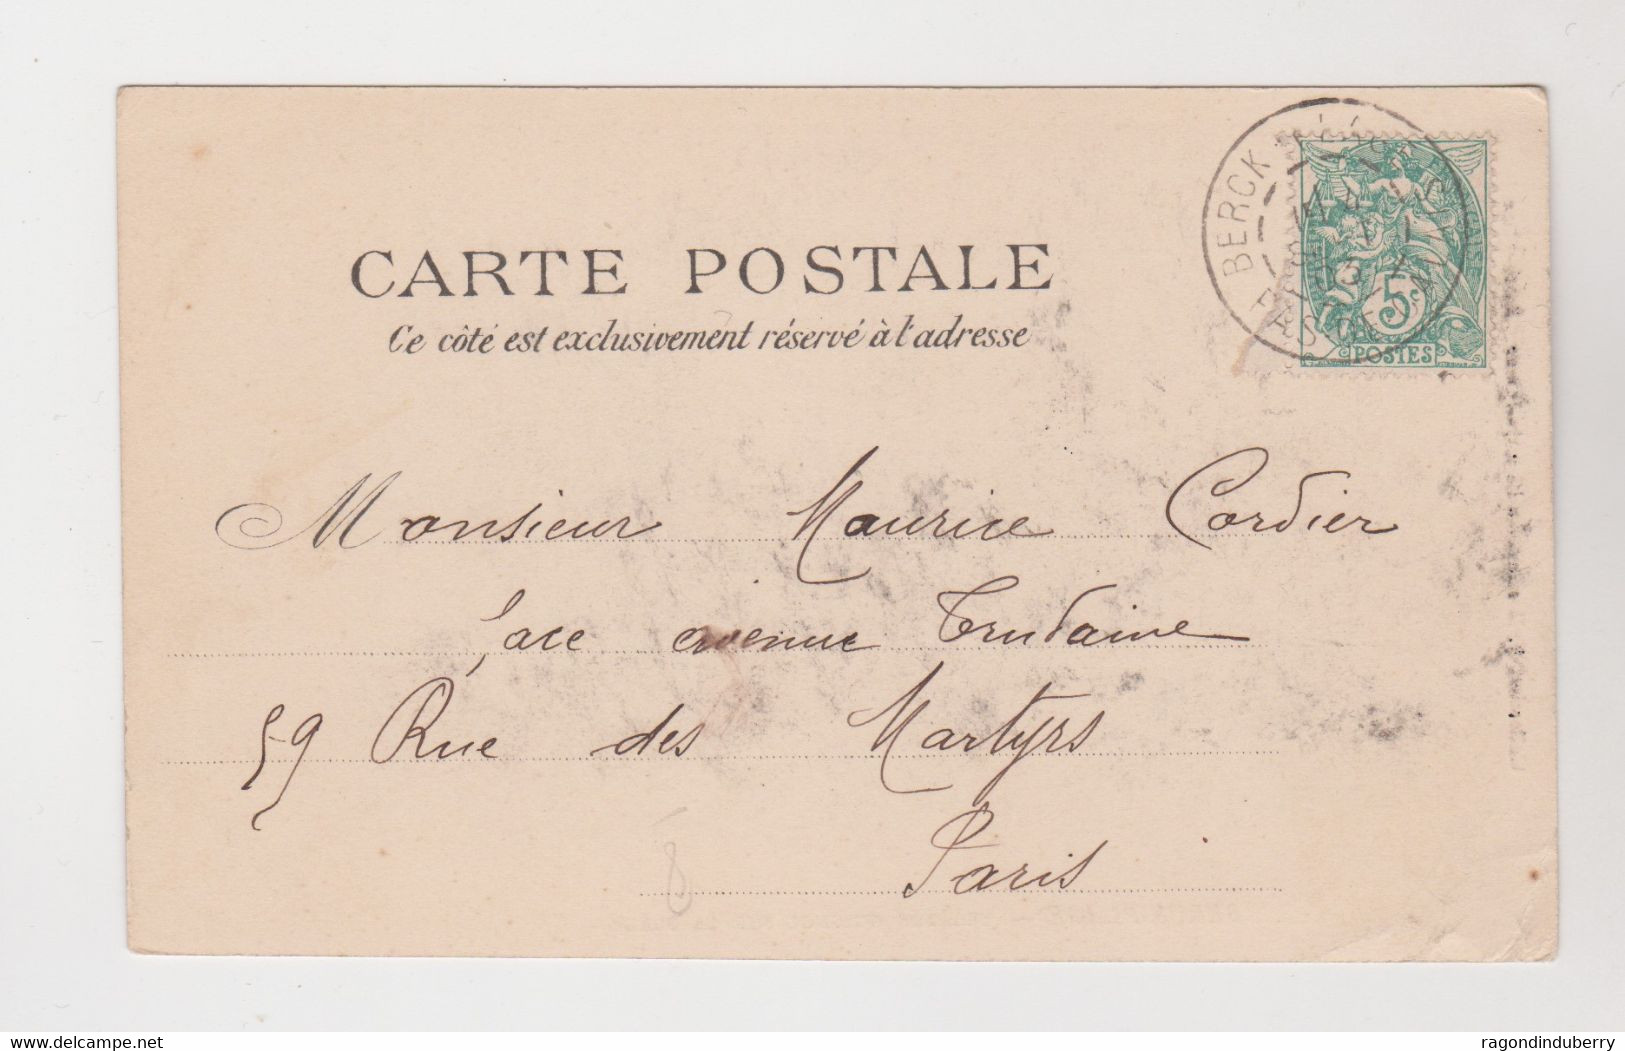 BERCK
5c
POSTES
CARTE POSTALE
Ce côté est exclusivement réservé à l'adresse
Monsieur Maurice Cordier
face avenue Trudaine
59 Rue des Martyrs
Paris
8
delcampe.net
ragondinduberry